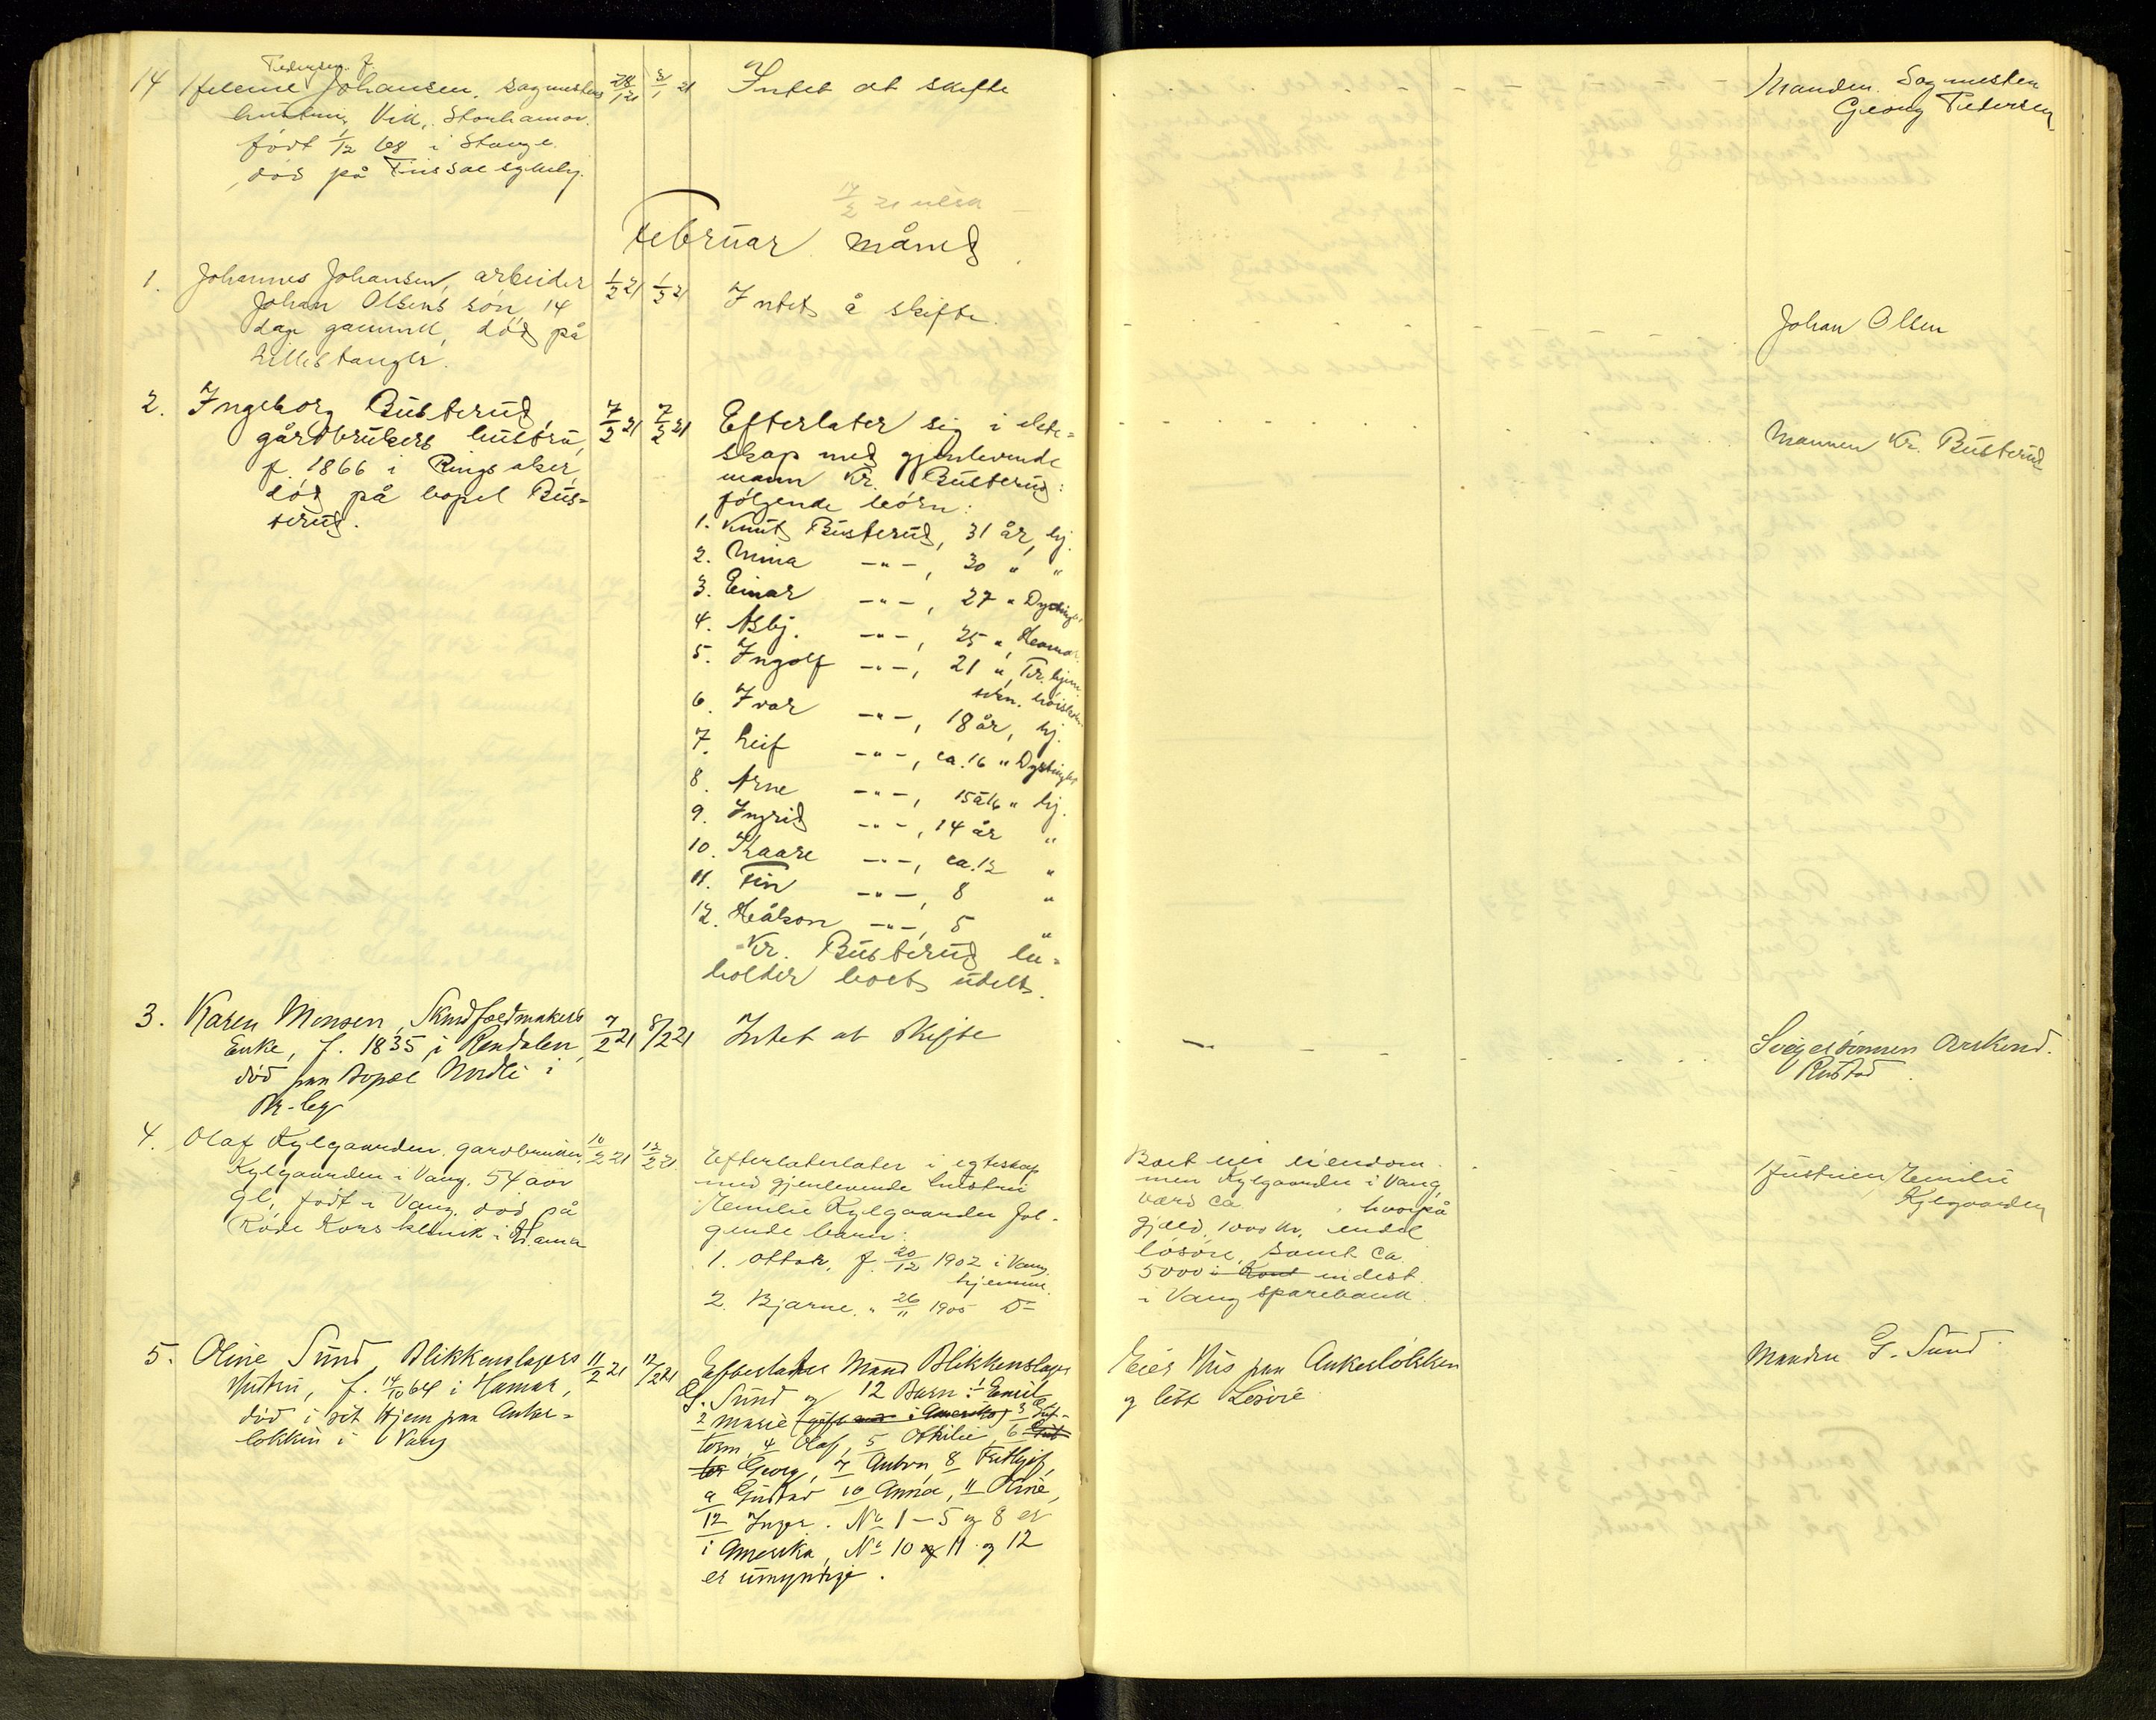 Pedersen f.
14 Helene Johansen, sagmesters 28/1 21 31/1 21 Intet at skifte Manden Sagmester
hustru, Vik, Storhamar. Georg Pedersen
født 1/12 68 i Stange.
død på Friisset sykehj.
14/2 21
Februar måned
1. Johannes Johansen, arbeider 1/2 21 1/2 21 Intet å skifte.
Johan Olsens søn, 14 Johan Olsen
dage gammel, død på
Lillestanger.
2. Ingeborg Busterud, 7/2 21 7/2 21 Efterlater sig i ekte= Mannen Kr. Busterud
gårdbrukers hustru, skap med gjenlevende
f. 1866 i Ringsaker, mann Kr. Busterud:
død på bopel Bus= følgende børn:
terud.
1. Knut Busterud, 31 år, hj.
2. Mina —"—, 30 " "
3. Einar —"—, 27 "
4. Asbj. —"—, 25 ", Hamar.
5. Ingolf —"—, 21 ", Tr.hjem
tekn. høiskole.
6. Ivar —"—, 18 år, hj.
7. Leif —"—, ca. 16 "
8. Arne —"—, 15 à 16 " hj.
9. Ingrid —"—, 14 år "
10. Kaare —"—, ca. 12 "
11. Fin —"—, 8 "
12. Håkon —"—, 5 "
Kr. Busterud be=
holder boet udelt.
3. Karen Monsen, Skindfeldmakers 7/2 21 8/2 21 Intet at skifte Svigersønnen
Enke, f. 1835 i Rendalen, Rustad.
død paa Bopæl Nordli i
4. Olaf Kylgaarden, gardbruker, 10/2 21 12/2 21 Efterlaterlater i egteskap Boet eier eiendom- Hustruen Emilie
Kylgaarden i Vang. 54 aar med gjenlevende hustru men Kylgaarden i Vang, Kylgaarden
gl., født i Vang, død på Emilie Kylgaarden føl- værd ca , hvorpå
Røde Kors klinik i Hamar gende barn: gjæld 1000 kr., endel
1. Ottar, f. 20/12 1902 i Vang, løsøre, samt ca.
hjemme. 5000 i Kont indest.
2. Bjarne, " 26/11 1905 Do i Vang sparebank.
5. Oline Sund, Blikkenslagers 11/2 21 12/2 21 Efterlater Mand Blikkenslager Eier Hus paa Ankerløkken Manden G. Sund
Hustru, f. 14/10 64 i Hamar, G. Sund og 12 Barn: 1 Emil og litt Løsøre
død i sit Hjem paa Anker= 2 Marie (gift i Amerika) 3 Gut-
løkken i Vang torm, 4 Olaf, 5 Othilie, 6 Gut
tor Georg, 7 Anton, 8 Frithjof,
9 Gustav 10 Anna, 11 Oline,
12 Inger. No 1—5 og 8 er
i Amerika, No 10 og 11 og 12
er umyndige.